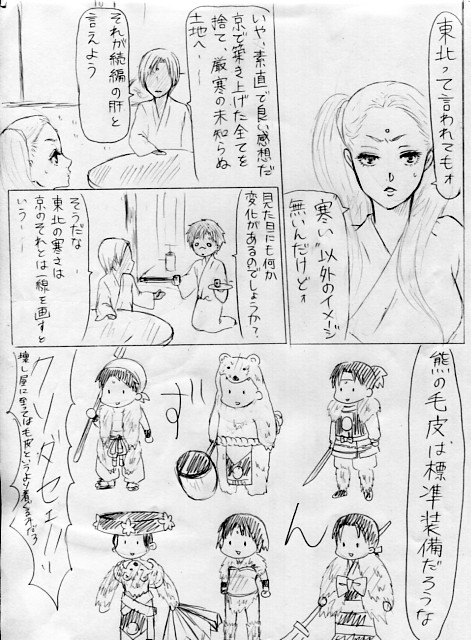 東北って言われてもォ
寒い以外のイメージ
無いんだけどォ
いや、素直で良い感想だ
京で築き上げた全てを
捨て、厳寒の未知らぬ
土地へ――
それが続編の肝と
言えよう
見た目にも何か
変化があるのでしょうか？
そうだな――
東北の寒さは
京のそれとは一線を画すと
いう――
熊の毛皮は標準装備だろうな
ずん
クソダセェ!!!